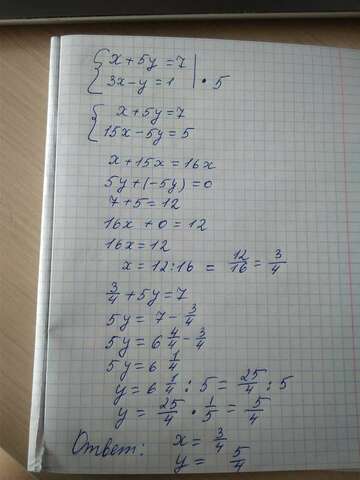 { x + 5y = 7 |
{ 3x - y = 1 | • 5
{ x + 5y = 7
{ 15x - 5y = 5
x + 15x = 16x
5y + (-5y) = 0
7 + 5 = 12
16x + 0 = 12
16x = 12
x = 12 : 16 = 12/16 = 3/4
3/4 + 5y = 7
5y = 7 - 3/4
5y = 6 4/4 - 3/4
5y = 6 1/4
y = 6 1/4 : 5 = 25/4 : 5
y = 25/4 • 1/5 = 5/4
Ответ: x = 3/4
y = 5/4